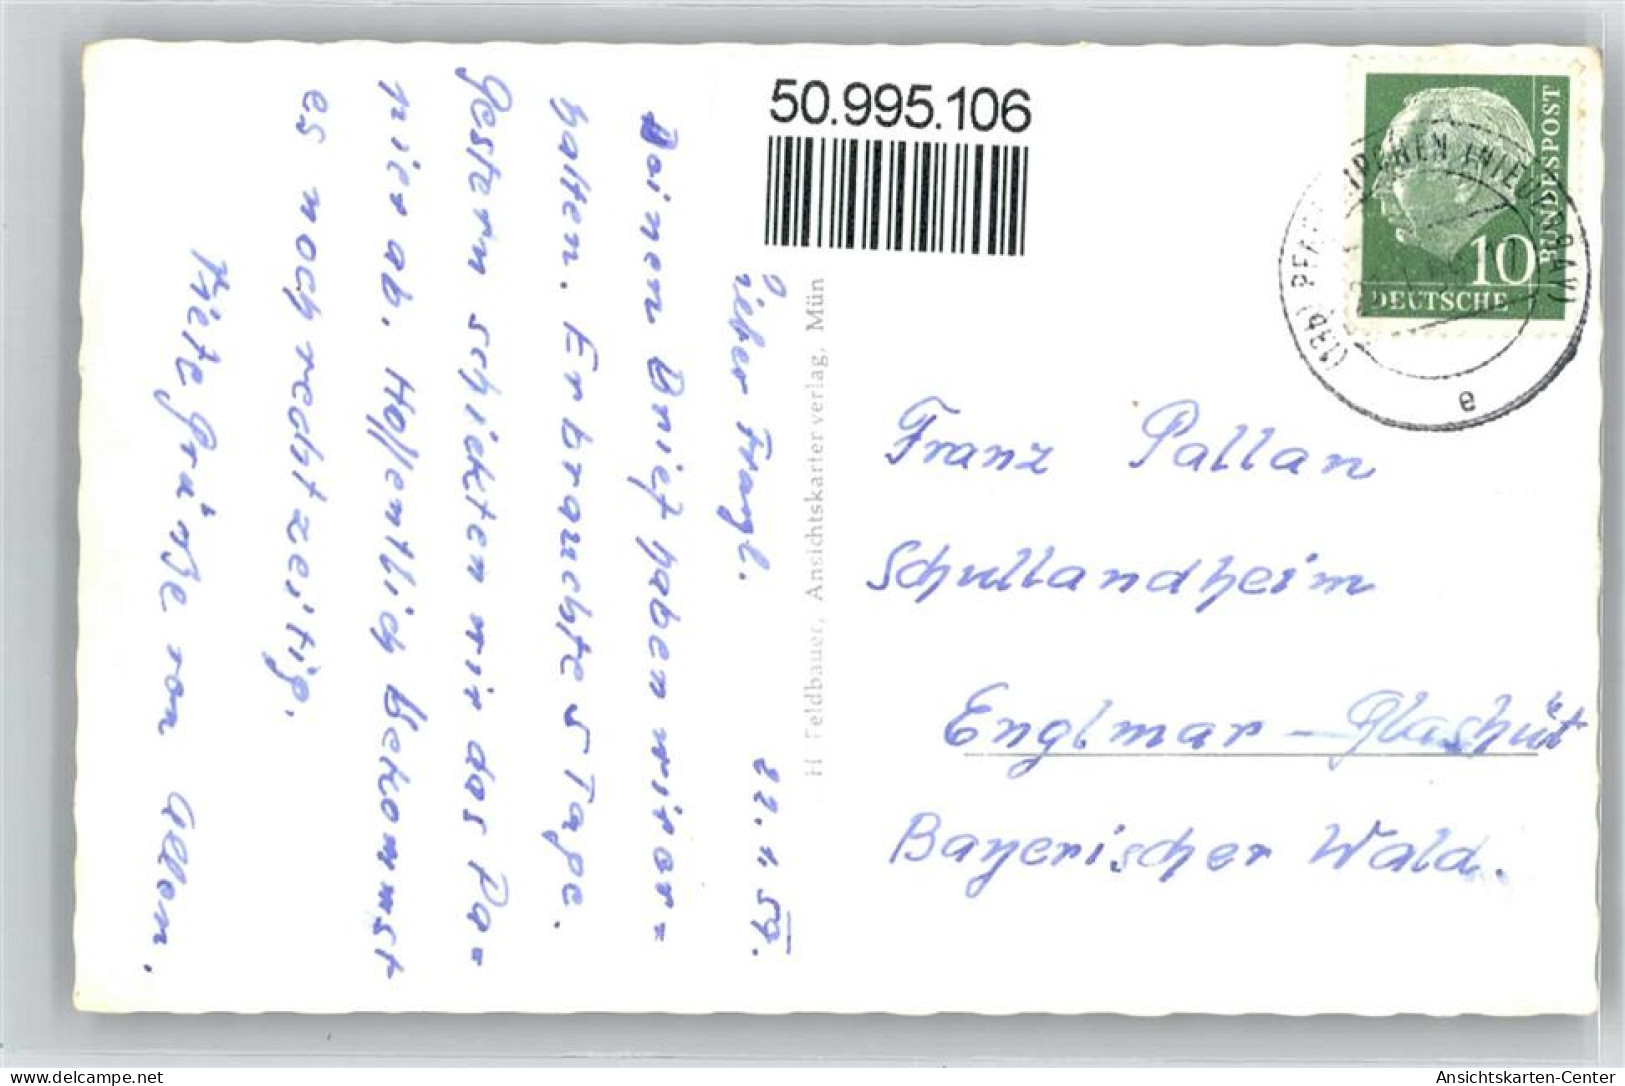 50.995.106
22.1.59.
Lieber Franzl.
Deinen Brief haben wir er=
halten. Er brauchte 5 Tage.
Gestern schickten wir das Pa=
pier ab. Hoffentlich bekommst
es noch rechtzeitig.
Viele Grüße von allen.
H. Feldbauer, Ansichtskartenverlag, Mün
DEUTSCHE
BUNDESPOST
10
(13b) PFARRKIRCHEN (NIEDERBAY)
e
Franz Pallan
Schullandheim
Englmar - Glashütt
Bayerischer Wald.
Ansichtskarten-Center
www.delcampe.net